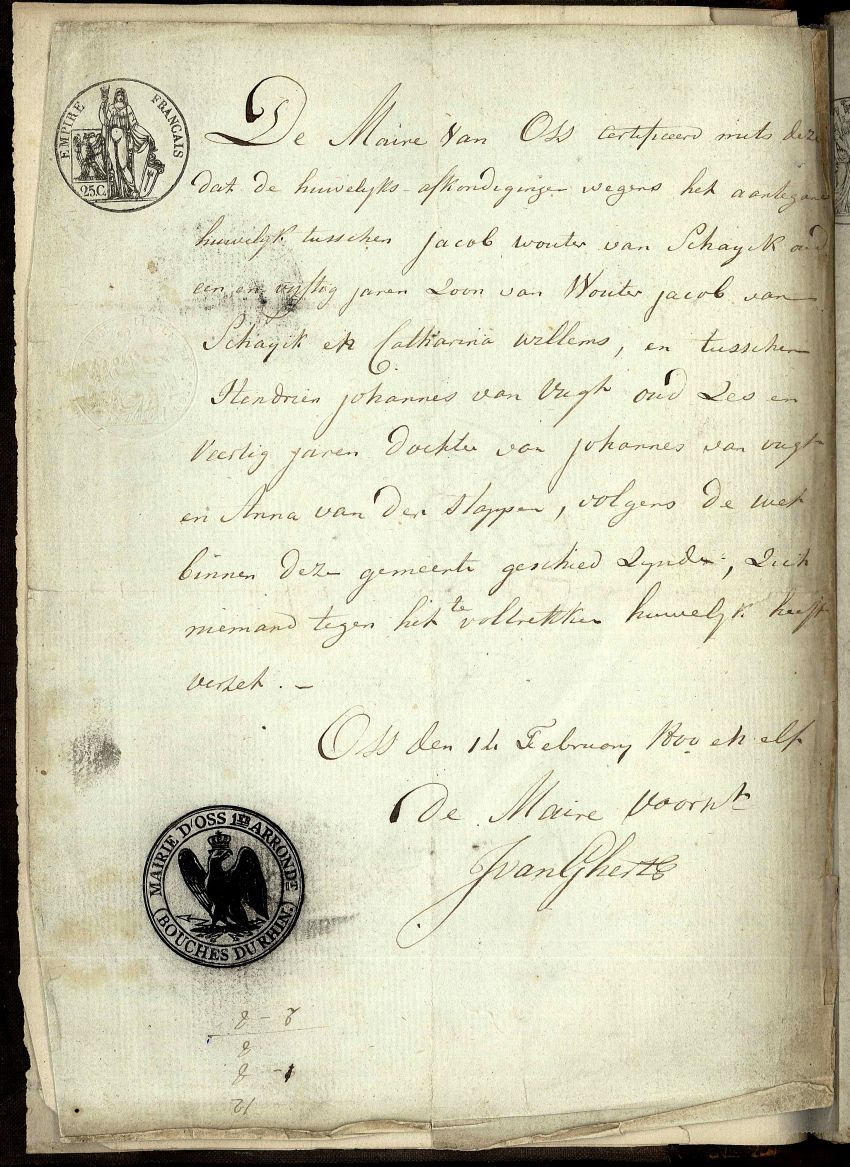 EMPIRE FRANÇAIS
25C.
De Maire van Oss certificeerd mits deze
dat de huwelijks-afkondigingen wegens het aantegane
huwelijk tusschen Jacob Wouter van Schayck oud
een en vijftig jaren Zoon van Wouter Jacob van
Schayck en Catharina Willems, en tusschen
Hendrien Johannes van Vugt oud Zes en
Veertig jaren Dochter van Johannes van Vugt
en Anna van Der Stappen, volgens De wet
binnen deze gemeente geschied Zynde, Zich
niemand tegen het te voltrekken huwelyk heeft
verzet. —
Oss den February 1800 en elf
De Maire Voornt
JvanGhert
MAIRIE D'OSS 1ER ARRONDT
(BOUCHES DU RHIN.)
8 - 8
8
1 - 8
12